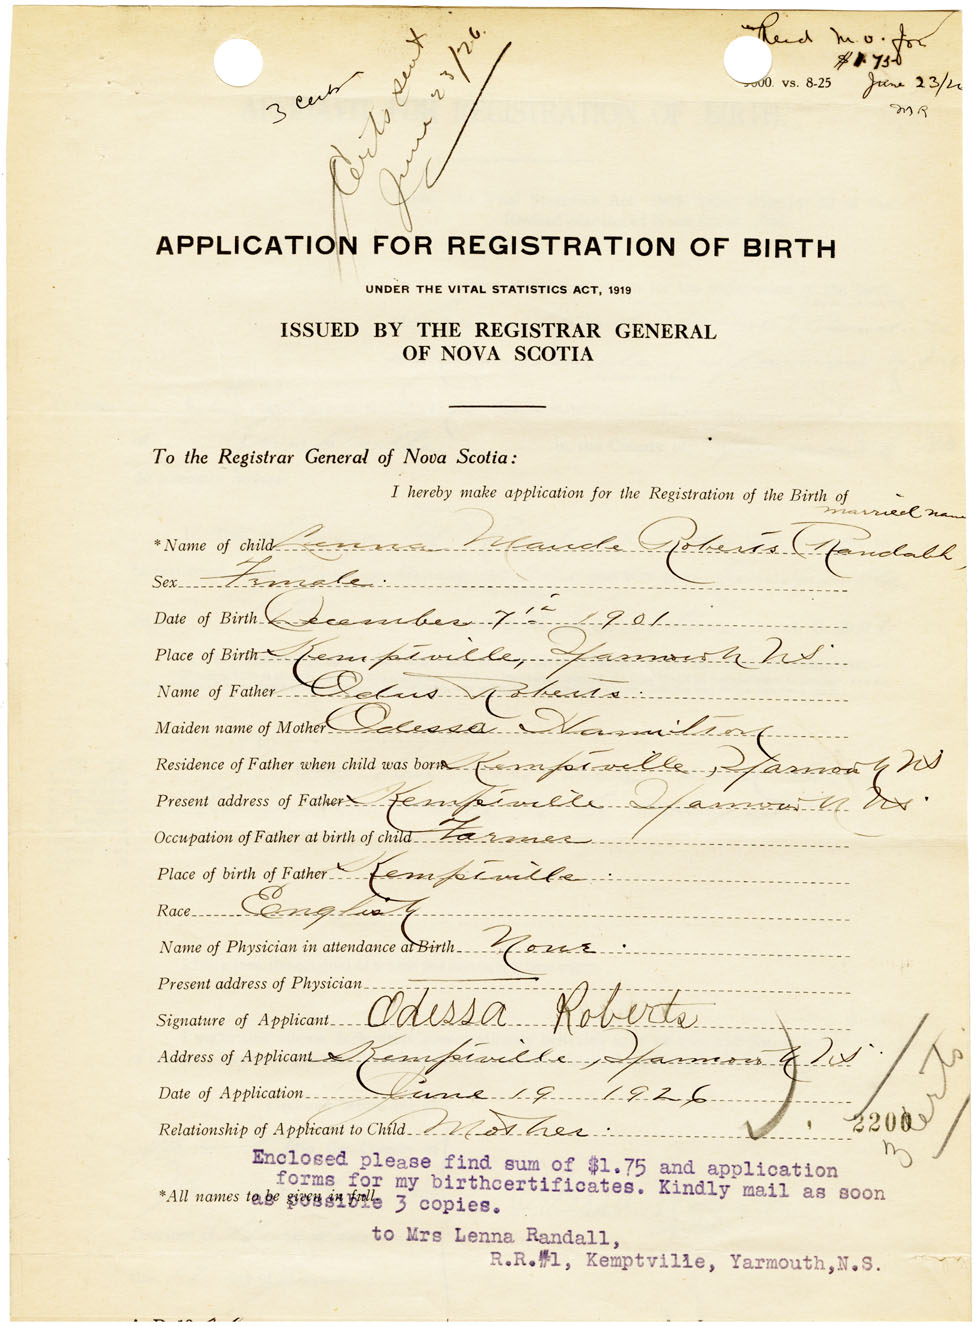 Recd M.O. for
$1.75
000. vs. 8-25 June 23/26
MR
3 certs
Certs sent
June 23/26.
APPLICATION FOR REGISTRATION OF BIRTH
UNDER THE VITAL STATISTICS ACT, 1919
ISSUED BY THE REGISTRAR GENERAL
OF NOVA SCOTIA
To the Registrar General of Nova Scotia:
I hereby make application for the Registration of the Birth of
married name
*Name of child Lenna Maude Roberts (Randall,
Sex Female.
Date of Birth December 7th 1901
Place of Birth Kemptville, Yarmouth NS
Name of Father Odus Roberts.
Maiden name of Mother Odessa Hamilton
Residence of Father when child was born Kemptville, Yarmouth NS
Present address of Father Kemptville Yarmouth NS.
Occupation of Father at birth of child Farmer
Place of birth of Father Kemptville.
Race English
Name of Physician in attendance at Birth None.
Present address of Physician
Signature of Applicant Odessa Roberts
Address of Applicant Kemptville, Yarmouth NS.
Date of Application June 19 1926
Relationship of Applicant to Child Mother.
2200
3 certs
Enclosed please find sum of $1.75 and application
forms for my birthcertificates. Kindly mail as soon
*All names to be given in full.
as possible 3 copies.
to Mrs Lenna Randall,
R.R.#1, Kemptville, Yarmouth,N.S.